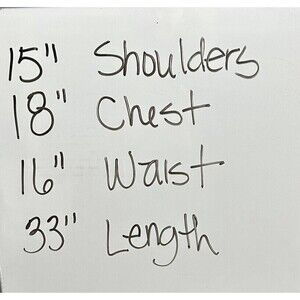 15" Shoulders
18" Chest
16" Waist
33" Length